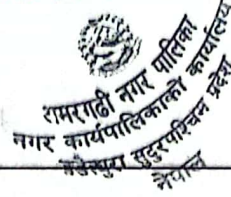 रामरगढी नगर पालिका
नगर कार्यपालिकाको कार्यालय
सुदुरपश्चिम प्रदेश
नेपाल